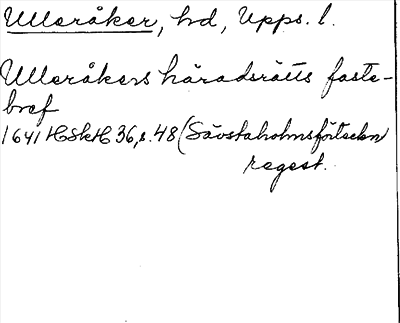 Ulleråker, hd, Upps. l.
Ulleråkers häradsrätts faste-
bref
1641 HSkH 36, s. 48 (Sävstaholmsförteckn
regest.